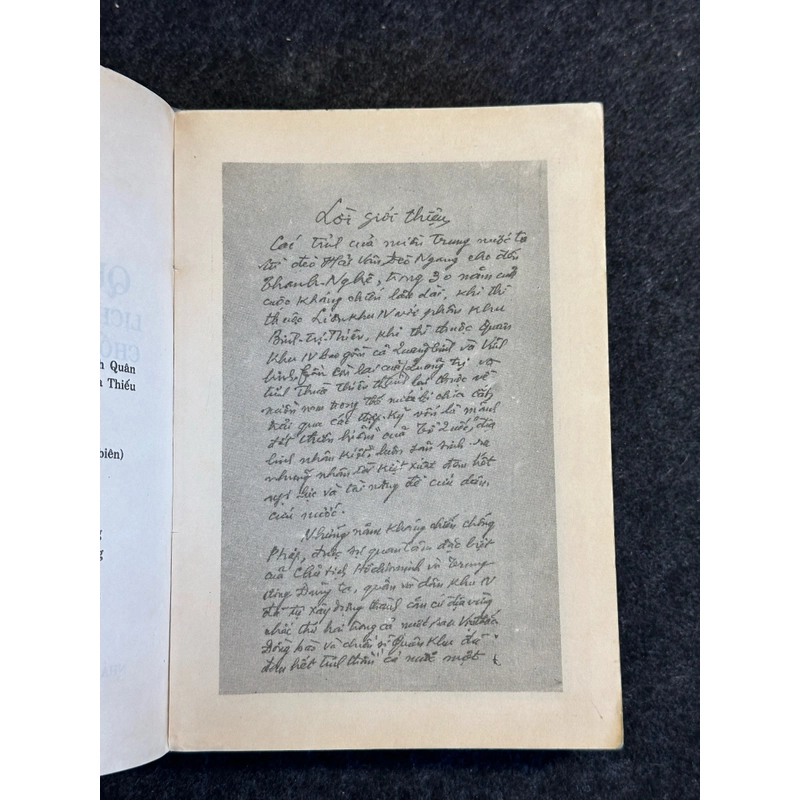 QU
LỊCH
CHỐ
n Quân
n Thiếu
biên)
g
g
NHÀ
Lời giới thiệu
Các tỉnh của miền Trung nước ta
từ đèo Hải Vân Đèo Ngang cho đến
Thanh-Nghệ, trong 30 năm của
cuộc kháng chiến lâu dài, khi thì
thuộc Liên khu IV với phân khu
Bình-Trị-Thiên, khi thì thuộc Quân
Khu IV bao gồm cả Quảng Bình và Vĩnh
linh. Còn lại của Quảng trị và
tỉnh Thừa Thiên thì lại thuộc về
miền nam trong thế nước bị chia cắt,
trải qua các thập kỷ vốn là mảnh
đất hiểm của Tổ Quốc, địa
linh nhân kiệt, luôn luôn sinh ra
những nhân tài kiệt xuất đem hết
nghị lực và tài năng để cứu dân,
cứu nước.
Những năm kháng chiến chống
Pháp, được sự quan tâm đặc biệt
của Chủ tịch Hồ chí minh và Trung
ương Đảng ta, quân và dân Khu IV
đã tự xây dựng thành căn cứ địa vững
chắc thứ hai trong cả nước sau Việt bắc
Đồng bào và chiến sĩ Quân Khu đã
đem hết tinh thần cả nước một